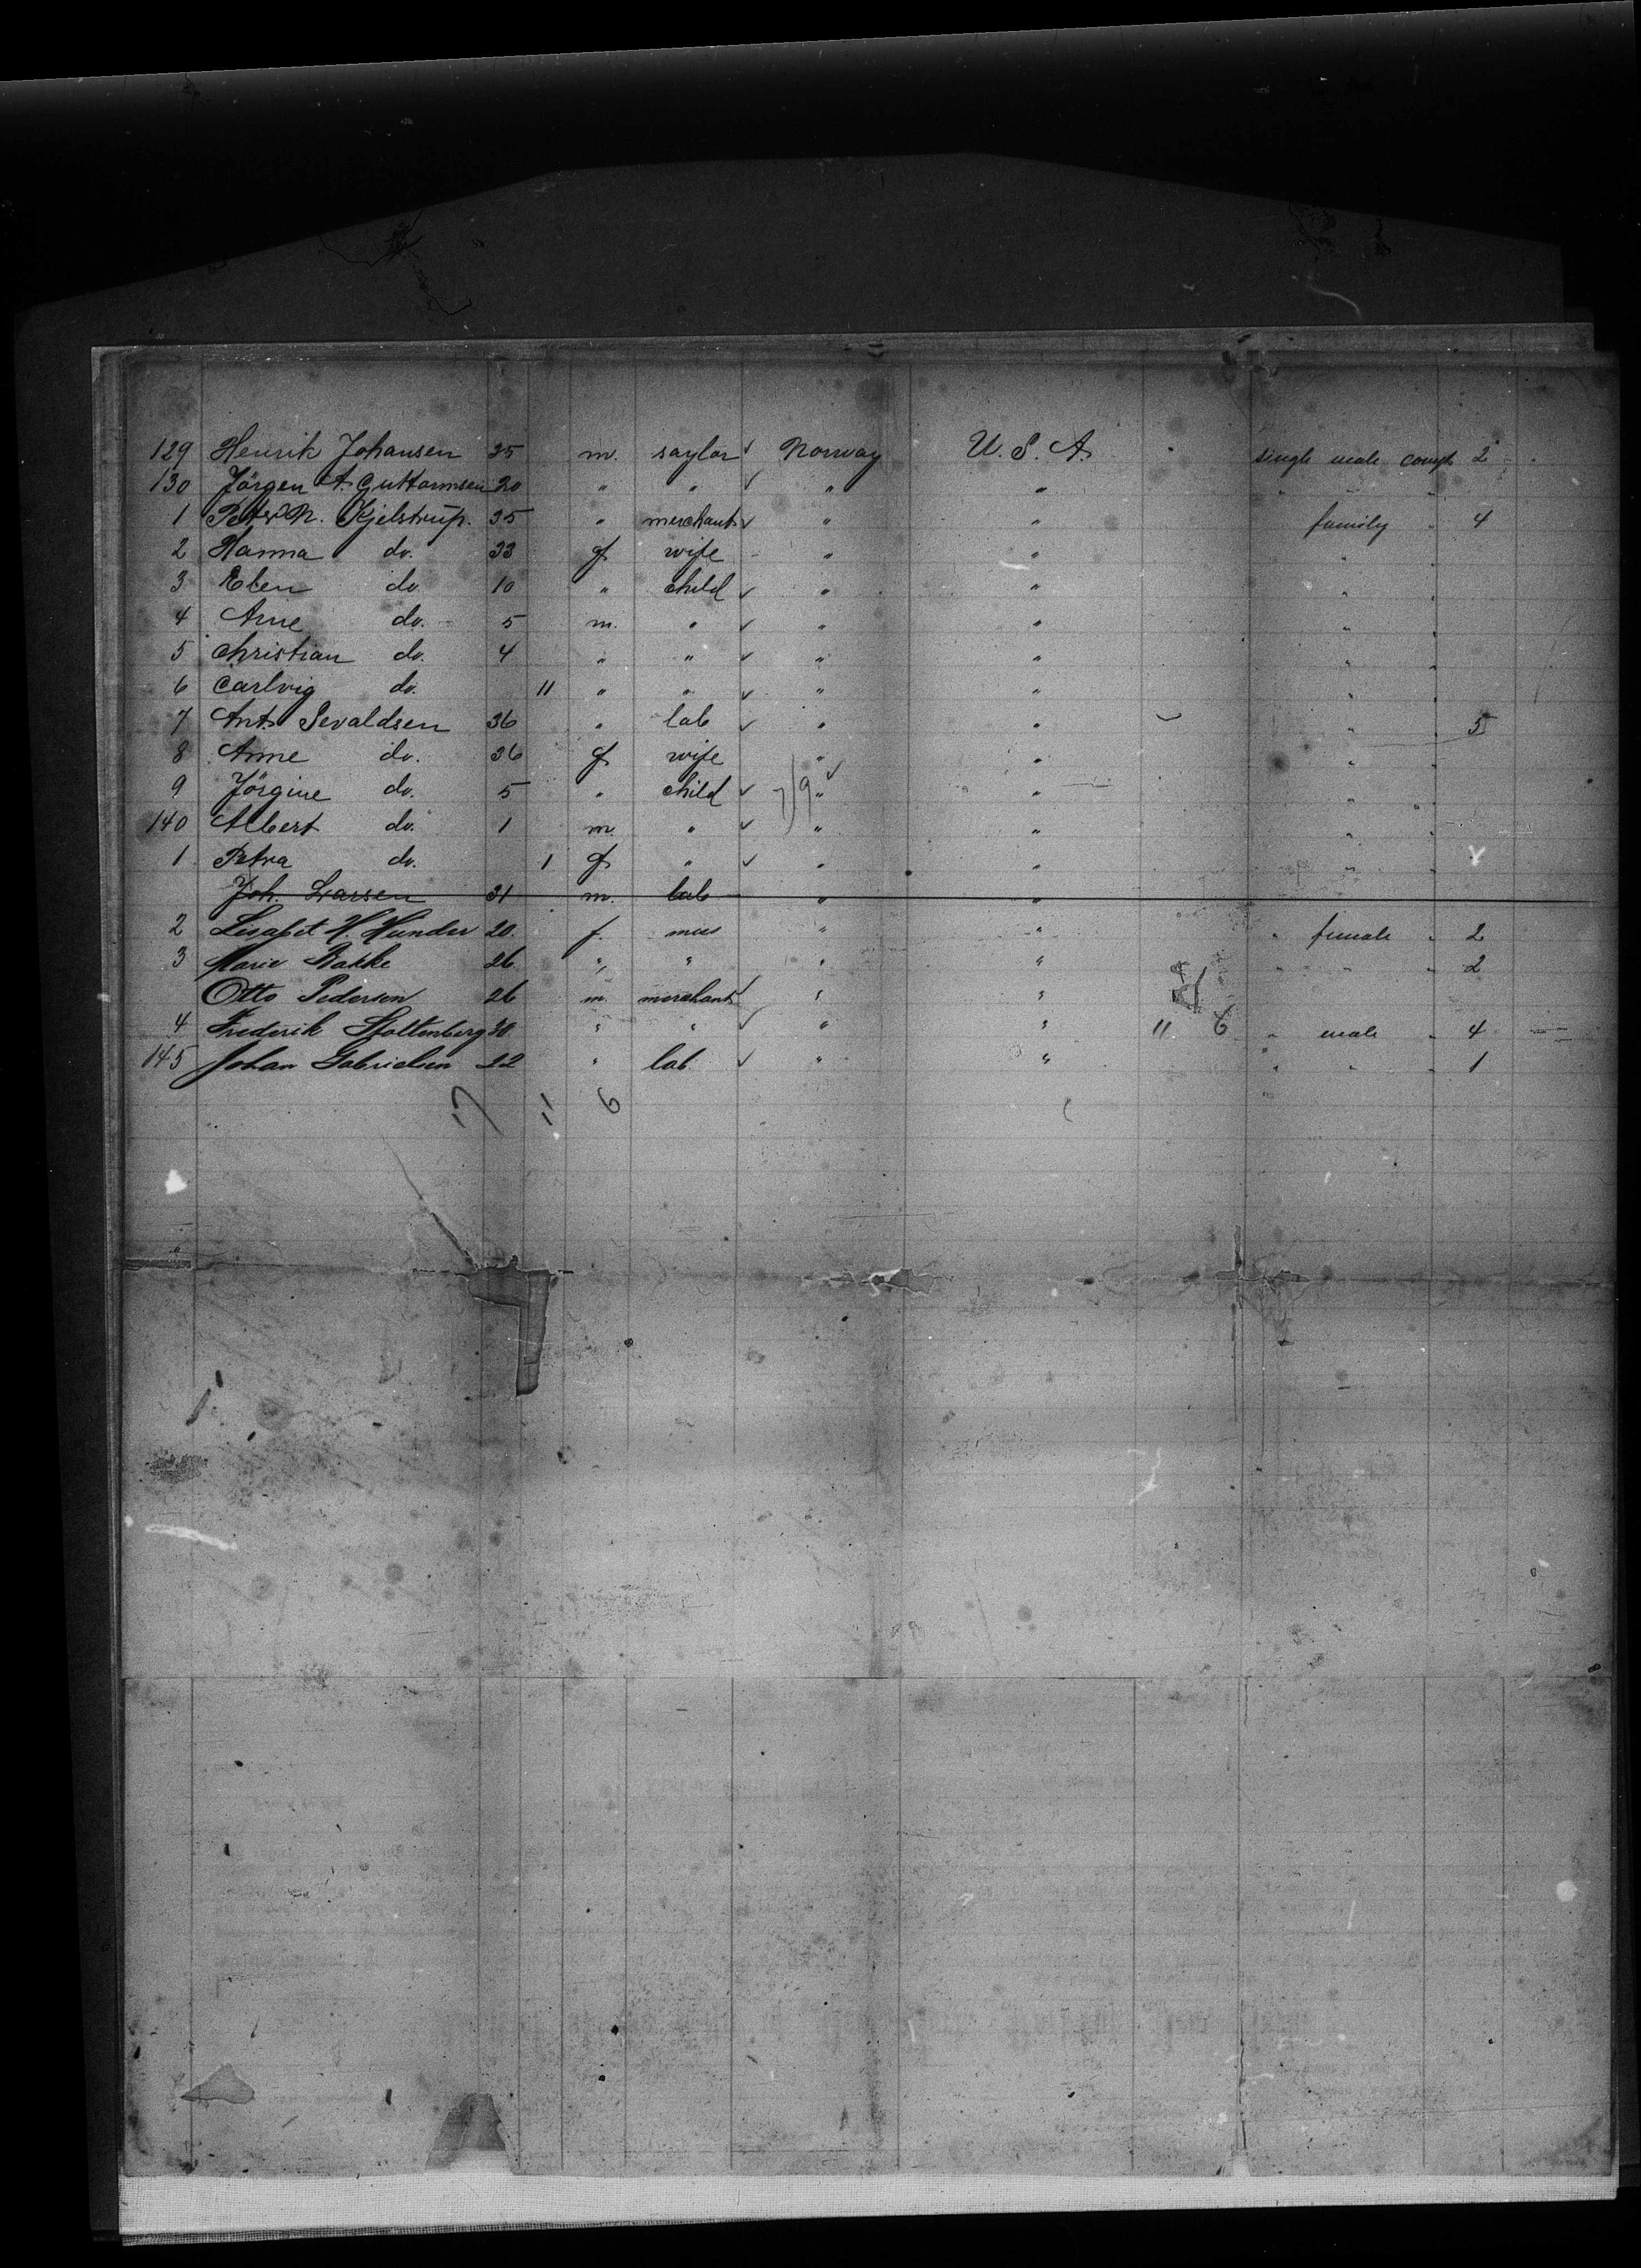 129 Henrik Johansen 25 m. saylor ✓ Norway U. S. A. single male compt 2
130 Jörgen A. Guttormsen 20 " " ✓ " " " " "
1 Peter N. Kjelstrup. 35 " merchant ✓ " " family " 4
2 Hanna do. 33 f. wife " " " "
3 Elen do 10 " child ✓ " " " "
4 Arne do. 5 m. " ✓ " " " "
5 Christian do. 4 " " ✓ " " " "
6 Carlvig do. 11 " " ✓ " " " "
7 Ant. Sevaldsen 36 " lab ✓ " " " " 5
8 Anne do. 36 f. wife " " " "
9 Jörgine do. 5 " child ✓ " " " "
140 Albert do. 1 m. " ✓ " " " "
1 Petra do. 1 f. " ✓ " " " "
Joh. Larsen 31 m. lab " "
2 Lisabet H. Hunder 20. f. " " " female " 2
3 Marie Bakke 26 " " " " " " " 2
Otto Pedersen 26 m. merchant ✓ " "
4 Frederik Stoltenberg 30 " " ✓ " " 11 6 " male " 4
145 Johan Gabrielsen 22 " lab ✓ " " " " " 1
17 11 6